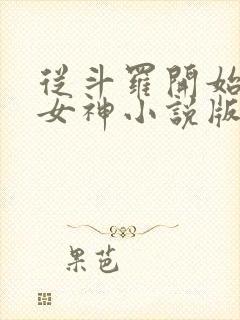 從斗羅開始
女神小說版
果芭